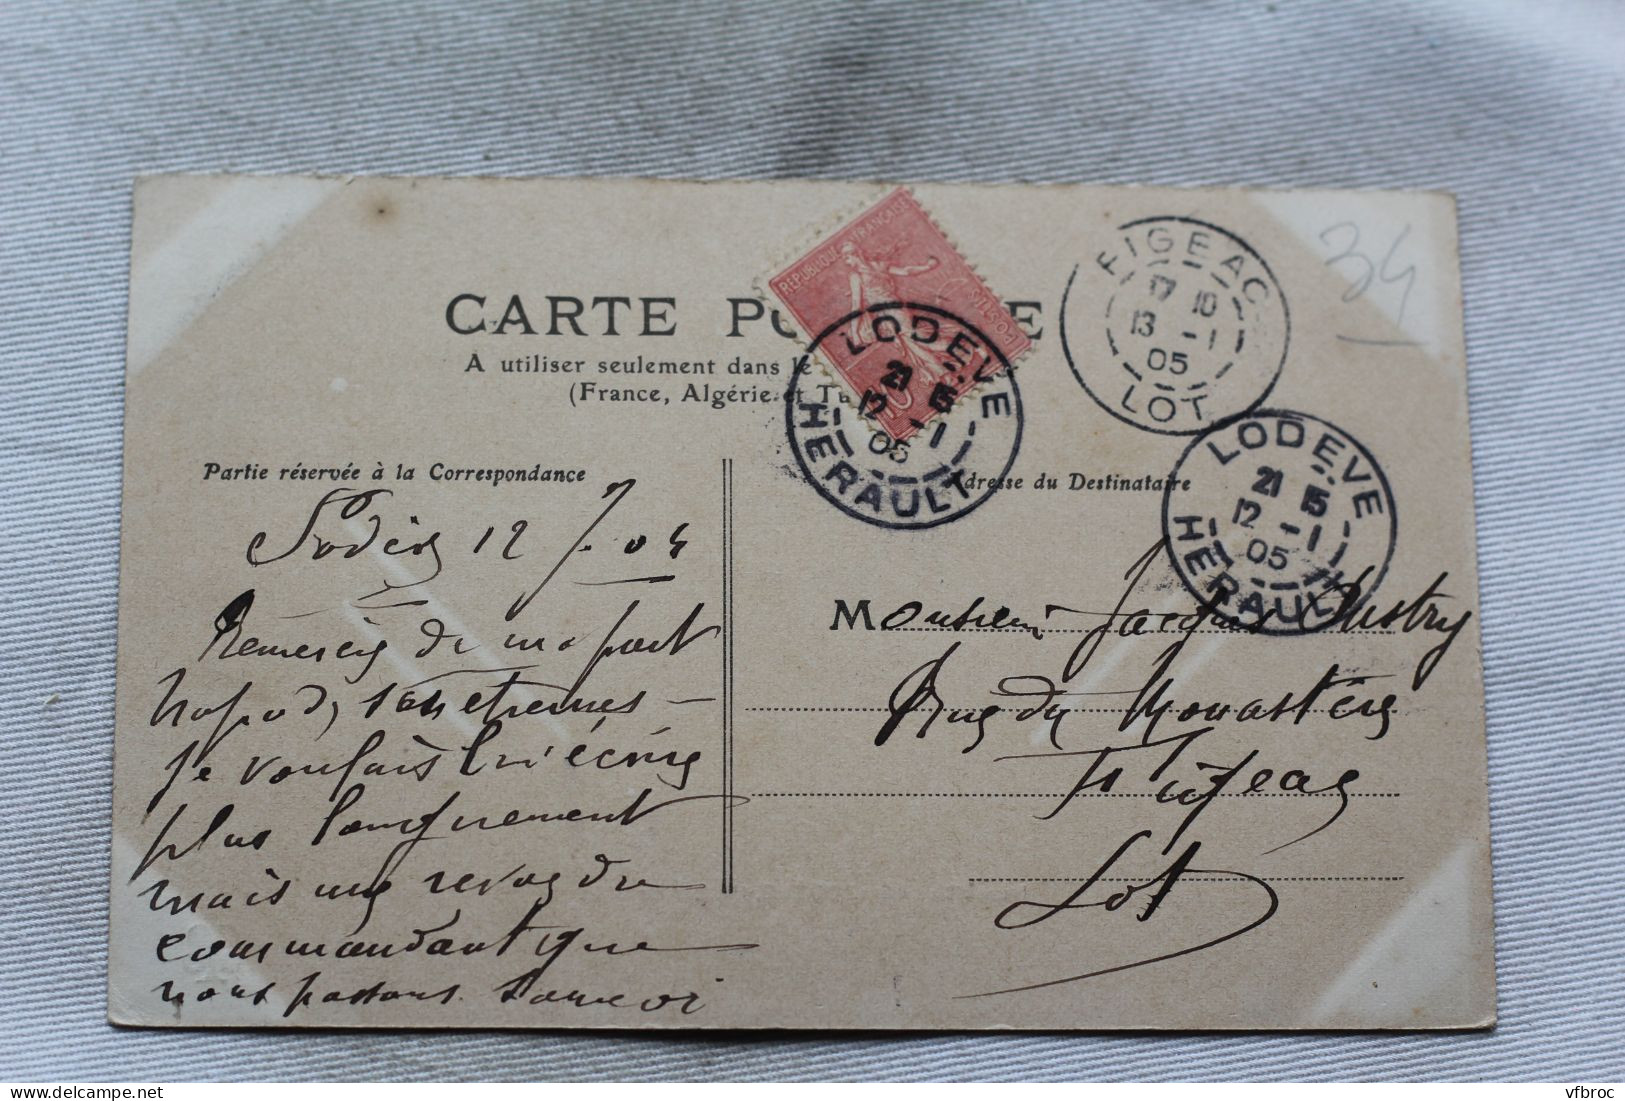 CARTE PO E
A utiliser seulement dans le
(France, Algérie et Tu
REPUBLIQUE FRANÇAISE
POSTES
10
LODÈVE
21 15
12 -1
05
HERAULT
FIGEAC
17 10
13 -1
05
LOT
34
LODÈVE
21 15
12 -1
05
HERAULT
Partie réservée à la Correspondance
Adresse du Destinataire
Lodève 12 04
de ma part
je voulais lui écrire
plus longuement
mais une revue du
commandant que
nous passons
Monsieur Jacques
Rue du Monastère
Figeac
Lot
www.delcampe.net
vfbroc